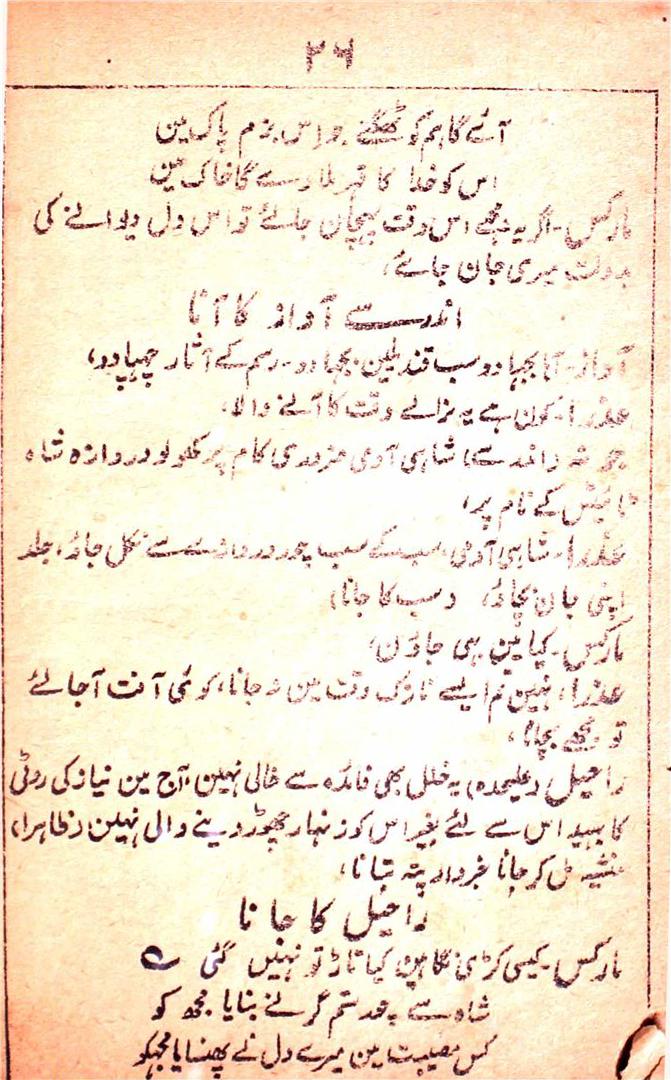 ۲۶
آئے گا ہم کو ٹھگنے جو اس بزم پاک مین
اس کو خدا کا قہر ملا دے گا خاک مین
مارکس۔ اگر یہ مجھے اس وقت پہچان جائے تو اس دل دیوانے کی
بدولت میری جان جائے،
اندر سے آواز کا آنا
آواز۔ بجہا دو سب قندیلین بجہا دو۔ رسم کے آثار چہپا دو،
عذرا۔ کون ہے یہ نرالے وقت کا آنے والا،
(اندر سے) شاہی آدمی ضروری کام پر کھولو دروازہ شاہ
کے نام پر،
عذرا۔ شاہی آدمی، سب کے سب چور دروازے سے نکل جاؤ، جلد
اپنی جان بچاؤ، (سب کا جانا)
مارکس۔ کیا مین بہی جاؤن،
عذرا، نہین تم ایسے نازک وقت مین نہ جانا، کوئی آفت آجائے
تو مجھے بچانا،
راحیل (علیحدہ) یہ خلل بھی فائدہ سے خالی نہین، آج مین نیاز کی روٹی
کا بہید اس سے لئے بغیر اس کو زنہار چھوڑ دینے والی نہین (ظاہرا)
مل کر جانا خبردار پتہ بتانا،
راحیل کا جانا
مارکس۔ کیسی کڑی نگاہین کیا تاڑ تو نہیں گئی ؎
شاہ سے ستم گر نے بنایا مجھ کو
کس مصیبت مین میرے دل نے پھنسایا مجہکو